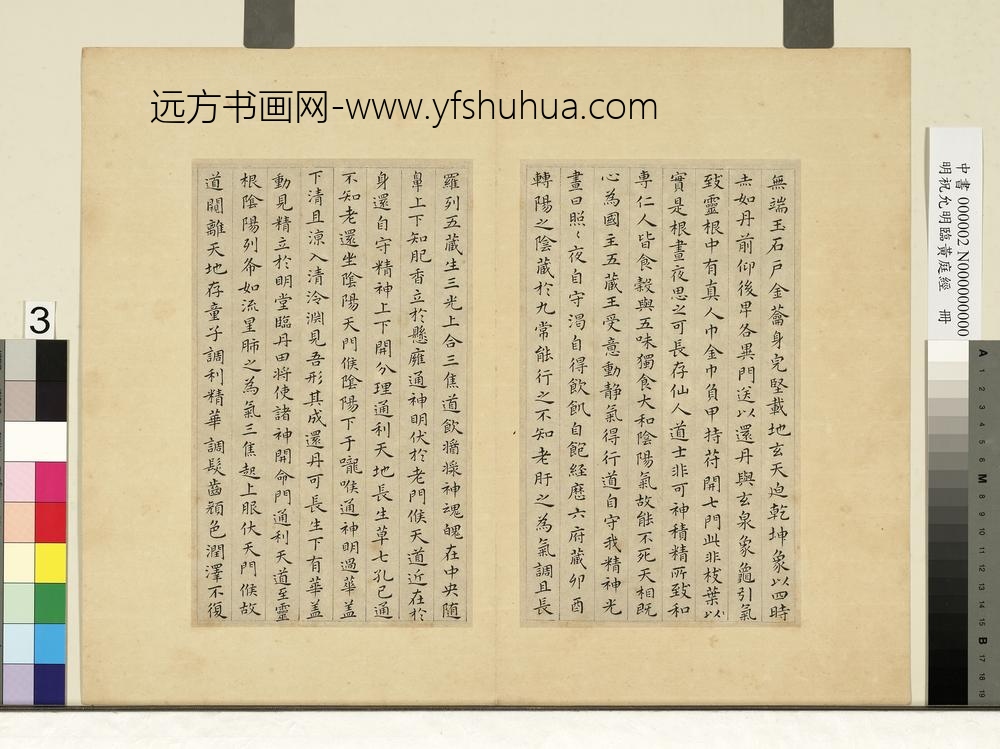 远方书画网-www.yfshuhua.com
無端玉石戶金籥身完堅載地玄天迫乾坤象以四時
赤如丹前仰後卑各異門送以還丹與玄泉象龜引氣
致靈根中有真人巾金巾負甲持苻開七門此非枝葉以
實是根晝夜思之可長存仙人道士非可神積精所致和
專仁人皆食穀與五味獨食大和陰陽氣故能不死天相既
心為國主五蔵王受意動静氣得行道自守我精神光
晝日照〻夜自守渴自得飲飢自飽経歷六府蔵卯酉
轉陽之陰蔵於九常能行之不知老肝之為氣調且長
羅列五蔵生三光上合三焦道飲醬漿神魂魄在中央随
鼻上下知肥香立於懸癰通神明伏於老門候天道近在於
身還自守精神上下開分理通利天地長生草七孔已通
不知老還坐陰陽天門候陰陽下于嚨喉通神明過華盖
下清且涼入清泠淵見吾形其成還丹可長生下有華盖
動見精立於明堂臨丹田将使諸神開命門通利天道至靈
根陰陽列布如流星肺之為氣三焦起上服伏天門候故
道闚離天地存童子調利精華調髮齒顔色潤澤不復
中書 000002 N000000000
明祝允明臨黃庭經 冊
3
A 1 2 3 4 5 6 M 8 9 10 11 12 13 14 15 B 17 18 19